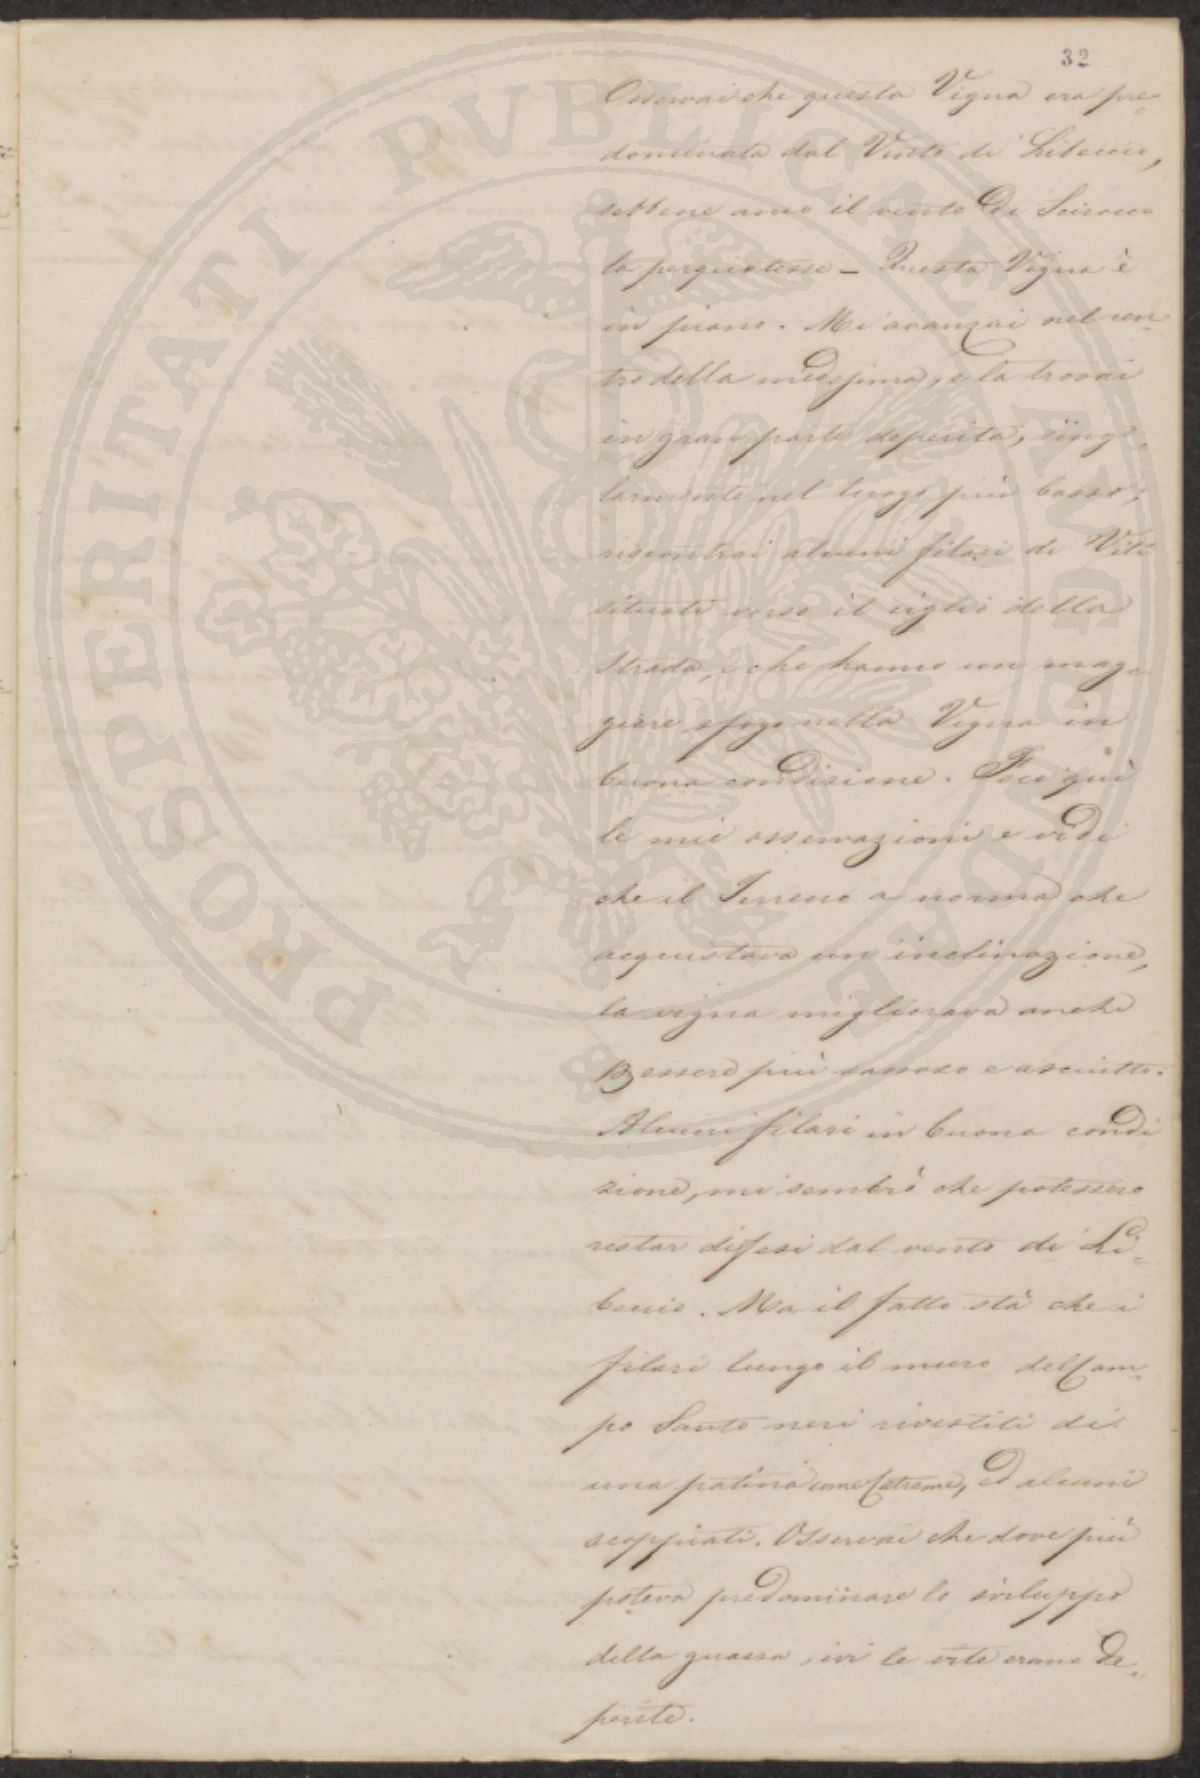 32
Osservai che questa Vigna era pre-
dominata dal Vento di Libeccio,
sebbene anco il vento di Scirocco
la perquotesse – Questa Vigna è
in piano. Mi avanzai nel cen-
tro della medesima, e la trovai
in gran parte deperita, singo-
larmente nel luogo più basso;
riscontrai alcuni filari di Viti
situati verso il ciglio della
Strada, e che hanno un mag-
giore sfogo nella Vigna in
buona condizione. Feci quì
le mie osservazioni e vidi
che il Terreno a norma che
acquistava un inclinazione,
la vigna migliorava anche
essere più sassoso e asciutto.
Alcuni filari in buona condi-
zione, mi sembrò che potessero
restar difesi dal vento di Li-
beccio. Ma il fatto stà che i
filari lungo il muro del Cam-
po Santo neri rivestiti di
una patina come Catrame, ed alcuni
scoppiati. Osservai che dove più
poteva predominare lo sviluppo
della guazza, ivi le vite erano de-
perite.
PROSPERITATI PVBLICAE AVGENDAE